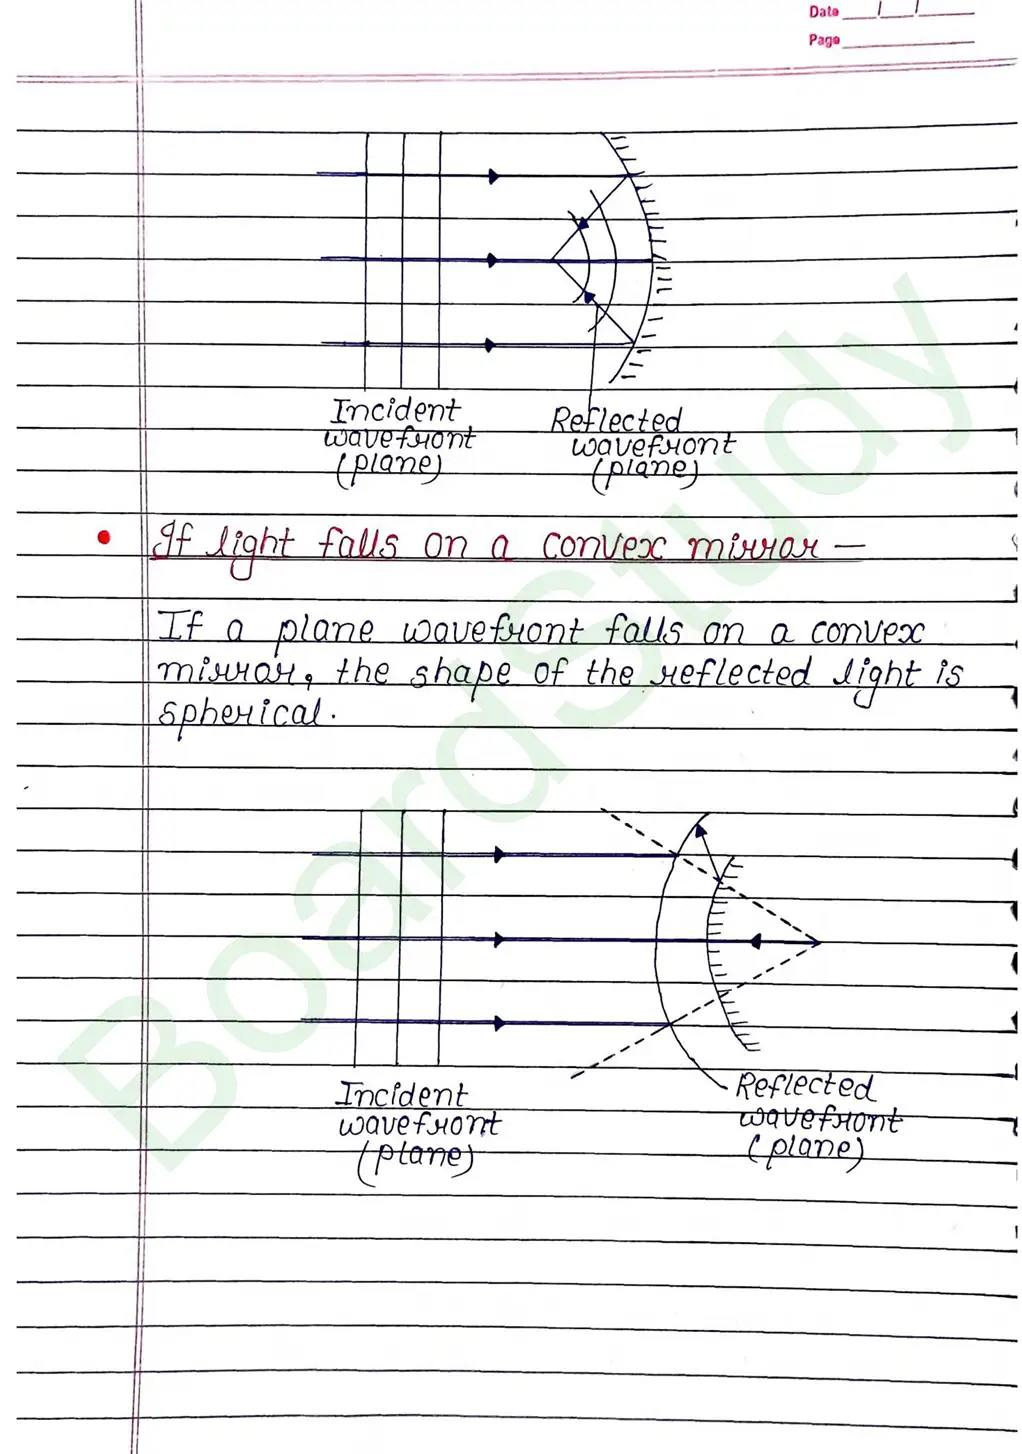 Date
Page
Incident
wavefront
(plane)
Reflected
wavefront
(plane)
• If light falls on a convex mirror —
If a plane wavefront falls on a convex
mirror, the shape of the reflected light is
spherical.
Incident
wavefront
(plane)
Reflected
wavefront
(plane)
BoardStudy